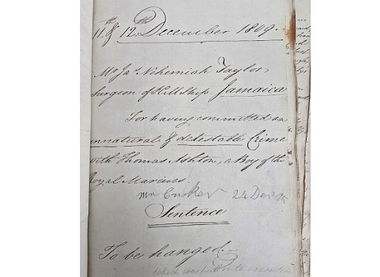 11th & 12th December 1809.
Mr Jas Nehemiah Taylor
Surgeon of H M Ship Jamaica
For having committed an
unnatural & detestable Crime
with Thomas Ashton, a Boy of the
Royal Marines.
Mr 24 Dec
Sentence
To be hanged